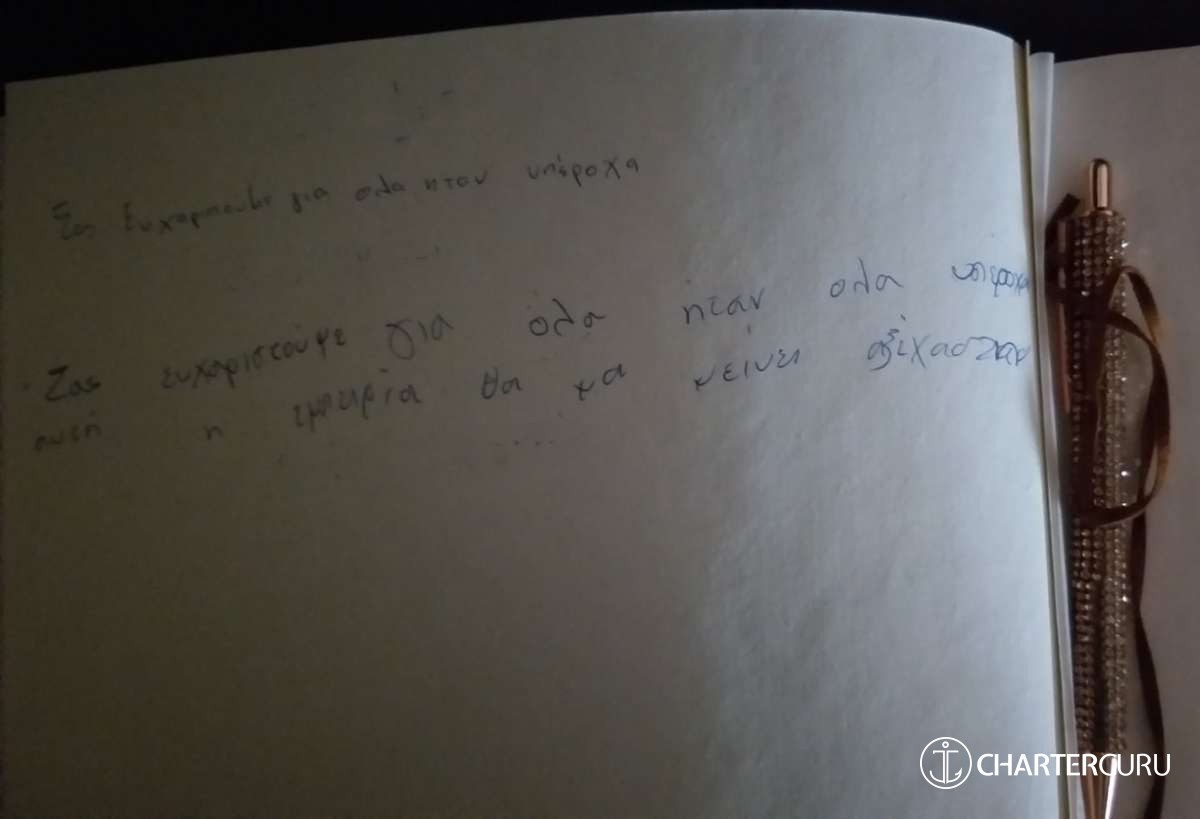 Σας Ευχαριστουμε για ολα ηταν υπέροχα
Σας ευχαριστούμε για όλα ηταν ολα υπέροχα
αυτή η εμπειρία θα μα μείνει αξέχαστη
CHARTERGURU